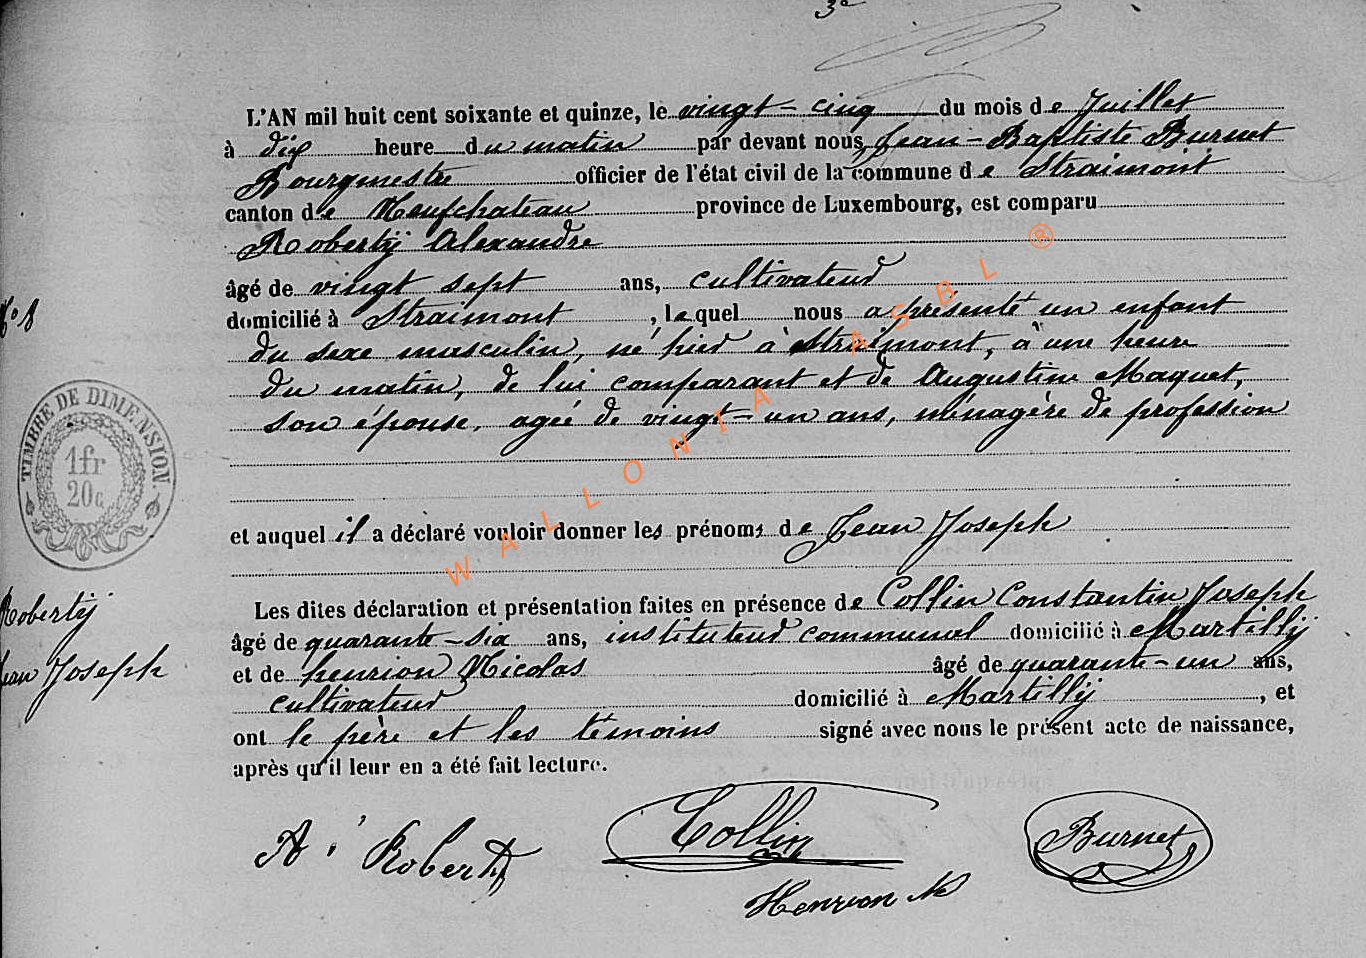 3e
L'AN mil huit cent soixante et quinze, le vingt-cinq du mois de Juillet
à dix heure du matin par devant nous, Jean-Baptiste Burnet
Bourgmestre officier de l'état civil de la commune de Straimont
canton de Neufchateau province de Luxembourg, est comparu
Robertÿ Alexandre
âgé de vingt sept ans, cultivateur
domicilié à Straimont, lequel nous a présenté un enfant
du sexe masculin, né hier à Straimont, à une heure
du matin, de lui comparant et de Augustine Maquet,
son épouse, agée de vingt-un ans, ménagère de profession
et auquel il a déclaré vouloir donner les prénoms de Jean Joseph
Les dites déclaration et présentation faites en présence de Collin Constantin Joseph
âgé de quarante-six ans, instituteur communal domicilié à Martillÿ
et de henrion Nicolas âgé de quarante-un ans,
cultivateur domicilié à Martillÿ, et
ont le père et les témoins signé avec nous le présent acte de naissance,
après qu'il leur en a été fait lecture.
A. Roberty
Collin
Burnet
Henrion N
No 8
TIMBRE DE DIMENSION.
1fr
20c
Robertÿ
Jean Joseph
WALLONIA ASBL ®